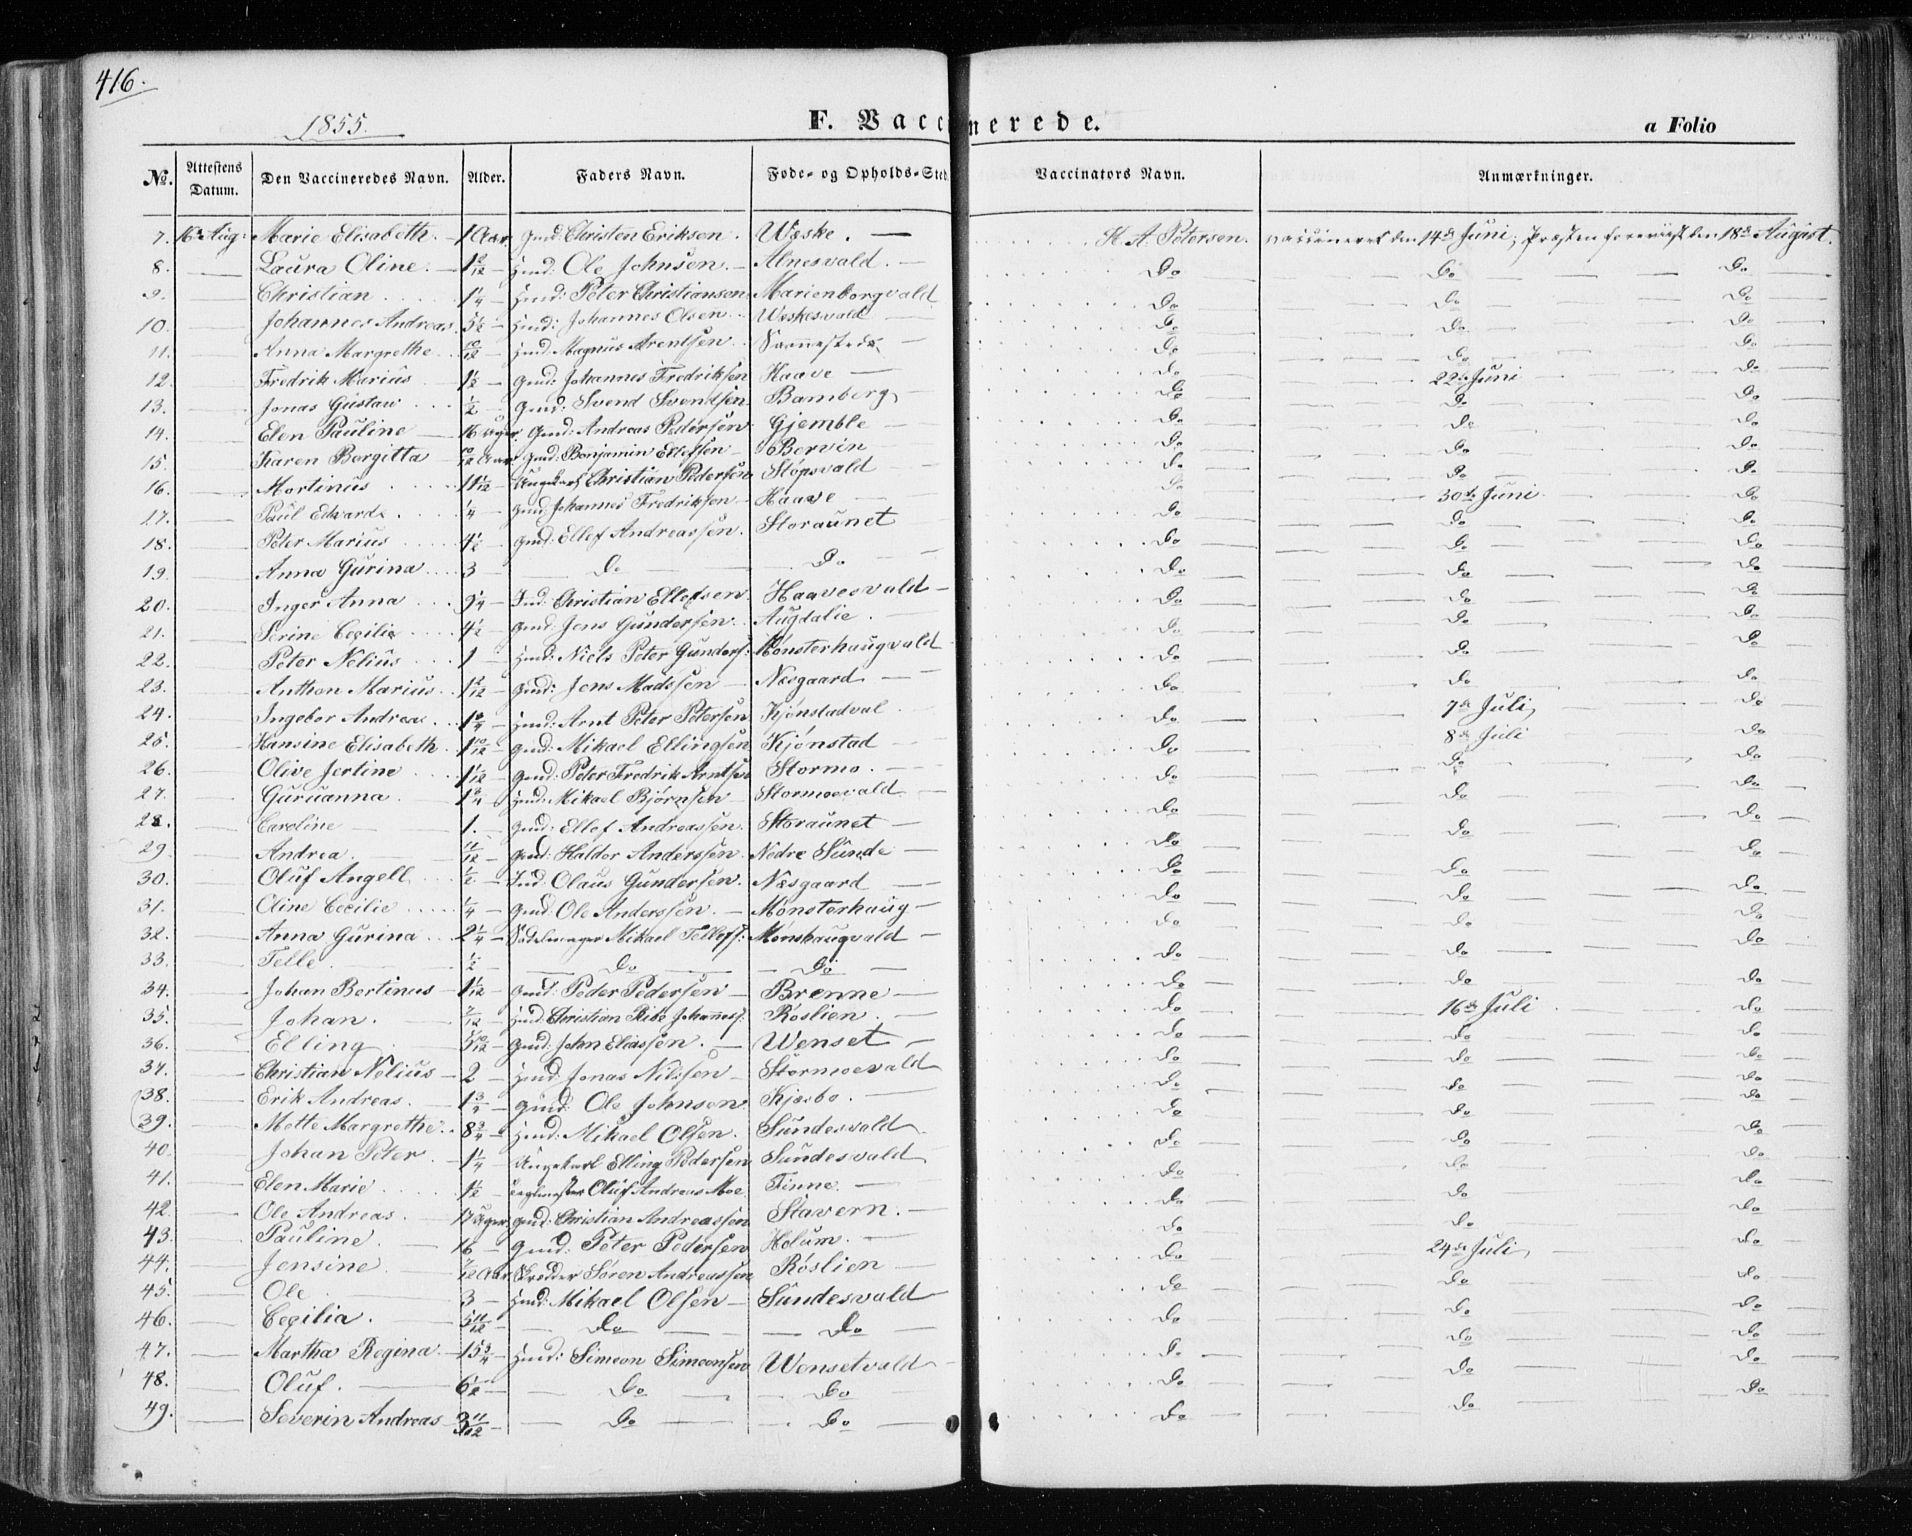 416.
1855.
F. Vaccinerede.
a Folio
No. Attestens Datum. Den Vaccineredes Navn. Alder. Faders Navn. Føde- og Opholds-Sted. Vaccinators Navn. Anmærkninger.
7. 16de Aug: Marie Elisabeth. 1 Aar. Gmd: Christen Eriksen. Weske. — H. A. Petersen. vaccineret den 14de Juni; Præsten foreviist den 18de August.
8. — Laura Oline. — Hmd: Ole Johnsen. — Alnesvald. — Do — Do — Do
9. — Christian 1 1/4 — Hmd: Peter Christiansen Marienborgvald Do — Do — Do
10. — Johannes Andreas. 5 1/2 — Hmd: Johannes Olsen. Weskesvald — Do — Do — Do
11. — Anna Margrethe. 10/12 — Hmd: Magnus Arentsen. — Do — Do — Do
12. — Fredrik Marius 1 1/2 — Gmd: Johannes Fredriksen Haave — Do — 22de Juni — Do
13. — Jonas Gustav 1/2 — Gmd: Svend Svendsen Bamberg — Do — Do — Do
14. — Elen Pauline — 16 Uger. Gmd: Andreas Pedersen Gjemble — Do — Do — Do
15. — Karen Bergitta — 10/12 Aar. Gmd: Benjamin Ellefsen — Bervin Do — Do — Do
16. — Martinus 11 1/12 — Ungkarl Christian Pedersen Stopsvald — Do — Do — Do
17. — Paul Edvard. 1/4 — Gmd: Johannes Fredriksen — Haave — Do — 30te Juni — Do
18. — Peter Marius 4 1/2 — Gmd: Ellef Andreassen. Storaunet — Do — Do — Do
19. — Anna Gurina 3 — Do — Do — Do — Do — Do
20. — Inger Anna 9 1/4 — Ind: Christian Ellefsen. Haavesvald — Do — Do — Do
21. — Serine Cecilie 4 1/2 — Gmd: Jens Gundersen. Augdalie. Do — Do — Do
22. — Peter Nelius 1 — Hmd: Niels Peter Gunders: Mønsterhaugvald Do — Do — Do
23. — Anthon Marius. — Gmd: Jens Madssen — Næsgaard — Do — Do — Do
24. — Ingebor Andrea. 1 3/4 — Hmd: Arnt Peter Petersen Kjønstadval Do — 7de Juli — Do
25. — Hansine Elisabeth. 1 10/12 — Gmd: Mikael Ellingsen Kjønstad — Do — 8de Juli — Do
26. — Olive Jertine 1 1/12 — Gmd: Peter Fredrik Arntsen Stormo. — Do — Do — Do
27. — Guruanna 1 3/4 — Hmd: Mikael Bjørnsen — Stormoevald — Do — Do — Do
28. — Caroline — 1. Gmd: Ellef Andreassen. Storaunet — Do — Do — Do
29. — Andrea 11/12 — Gmd: Haldor Anderssen. Nedre Sunde — Do — Do — Do
30. — Oluf Angell 1/2 — Ind: Olaus Gundersen. Næsgaard — Do — Do — Do
31. — Oline Cecilie 1/4 — Gmd: Ole Anderssen. — Mønsterhaug — Do — Do — Do
32. — Anna Gurina 2 1/4 — Mikael Tellefs: Mønshaugvald — Do — Do — Do
33. — Telle 1/2 — Do — Do — Do — Do — Do
34. — Johan Bertinus — 1 1/12 — Gmd: Peder Pedersen — Brenne — Do — Do — Do
35. — Johan. — Hmd: Christian Ribe Johanness: Røslien. — Do — 16de Juli — Do
36. — Elling 5 10/12 — Gmd: John Eliassen. — Wenset — Do — Do — Do
37. — Christian Nelius — 2 — Hmd: Jonas Nilssen — Stormoevald — Do — Do — Do
38. — Erik Andreas. 1 — Gmd: Ole Johnsen. Kjæsbo. — Do — Do — Do
39. — Mette Margrethe. 8 3/4 — Hmd: Mikael Olsen. Sundesvald Do — Do — Do
40. — Johan Peter. 1 1/4 — Ungekarl Elling Pedersen Sundesvald Do — Do — Do
41. — Elen Marie 1 1/2 — Teglmester Oluf Andreas Moe Tinne. — Do — Do — Do
42. — Ole Andreas. 17 Uger. Gmd: Christian Andreassen Stavern. — Do — Do — Do
43. — Pauline. 16 — Gmd: Peter Pedersen Holum. — Do — Do — Do
44. — Jensine Aar. Skredder Søren Andreassen Røslien — Do — 24de Juli — Do
45. — Ole 3 — Hmd: Mikael Olsen — Sundesvald — Do — Do — Do
46. — Cecilia. 5 11/12 — Do — Do — Do — Do — Do
47. — Martha Regina. — 15 3/4 — Hmd: Simeon Simeonsen Wensetvald — Do — Do — Do
48. — Oluf. — 6 1/2 — Do — Do Do — Do — Do
49. — Severin Andreas 3 11/12 — Do — Do — Do — Do